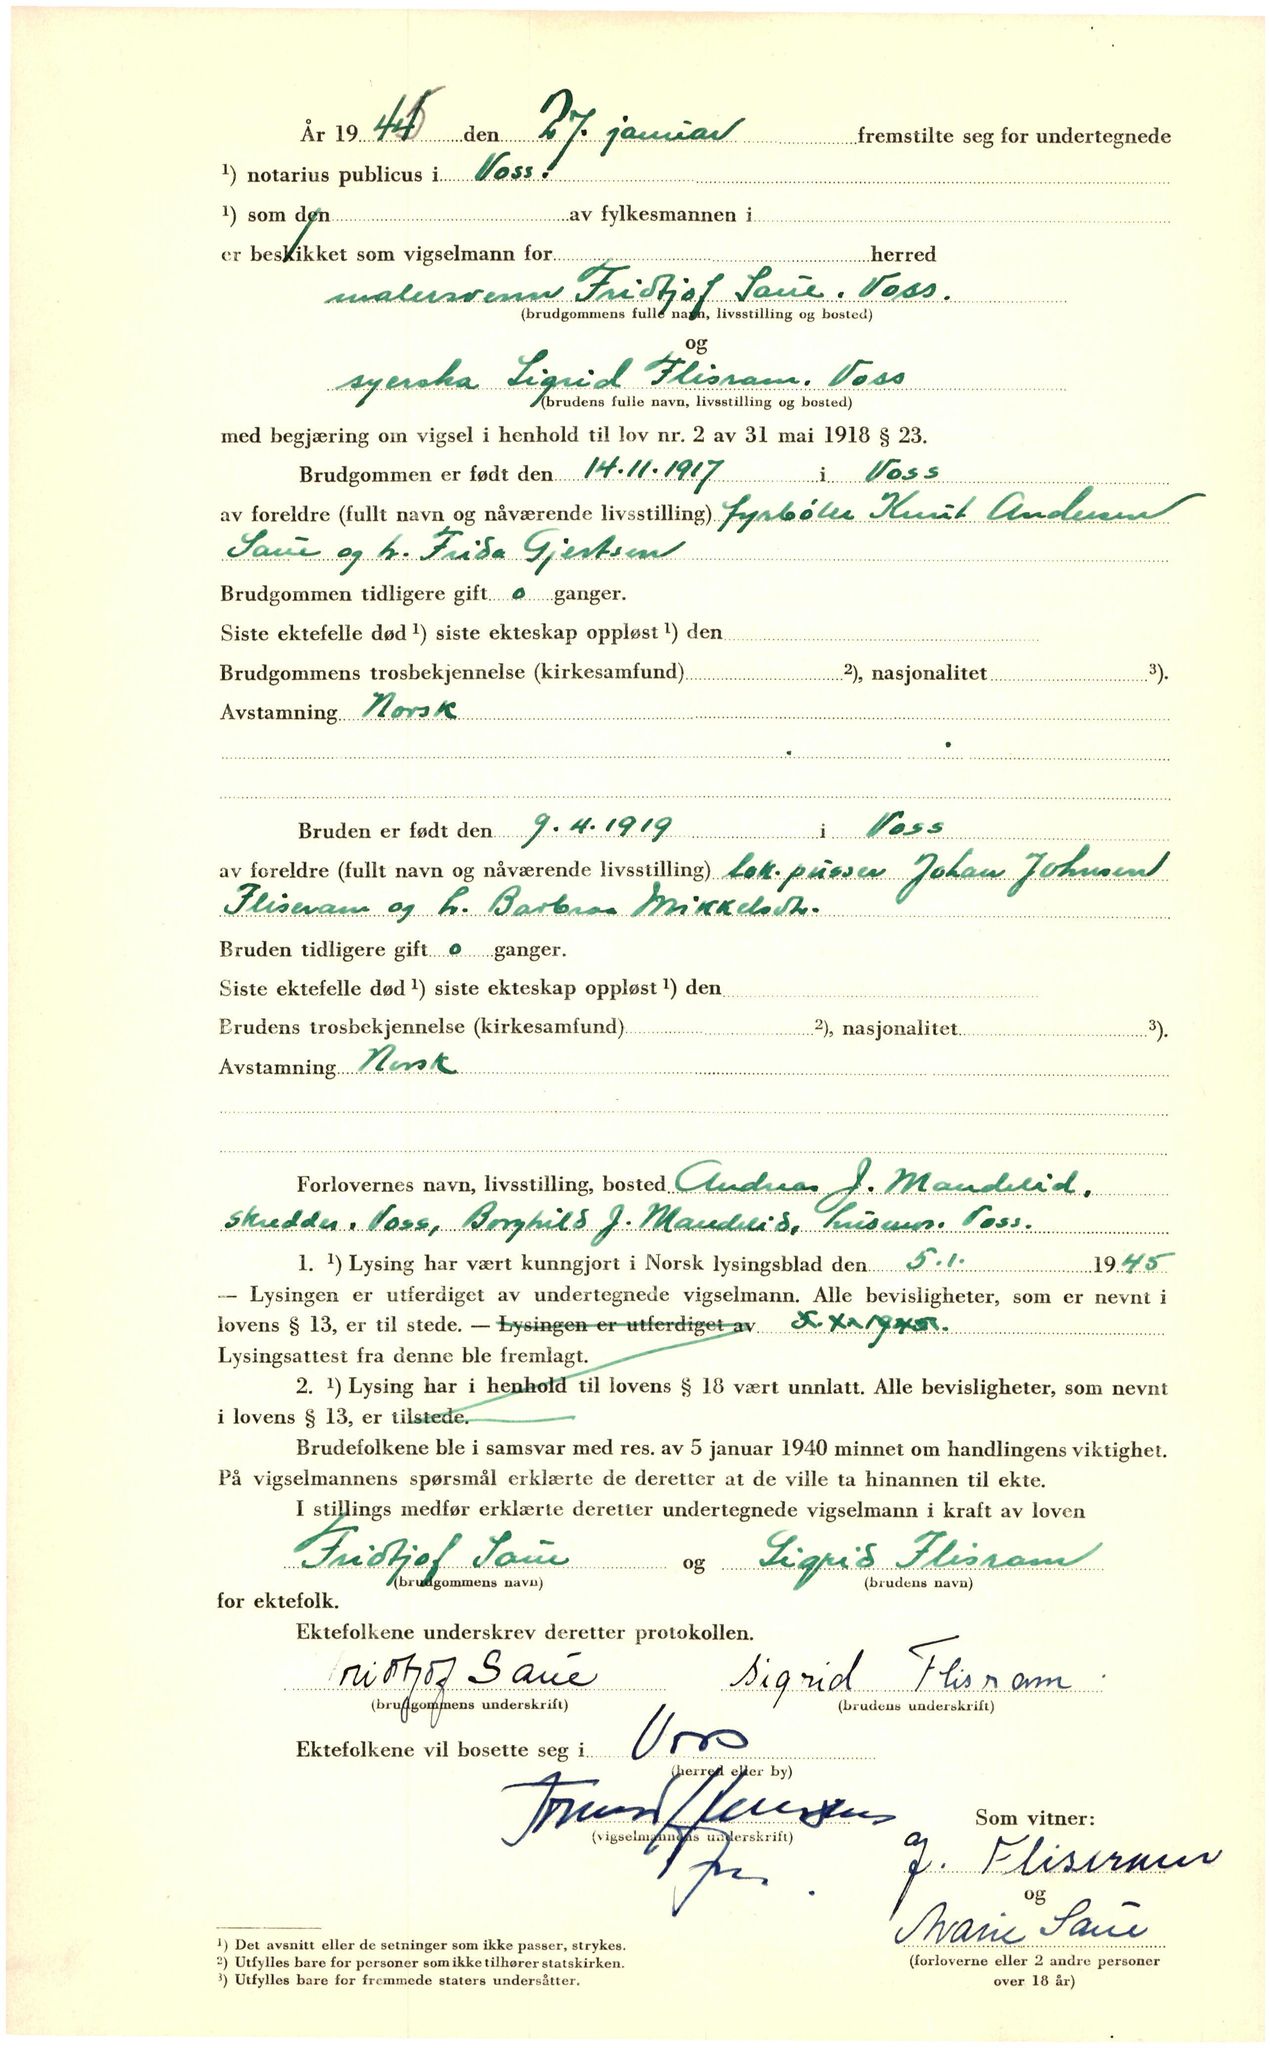 År 19 45 den 27. januar fremstilte seg for undertegnede
¹) notarius publicus i Voss.
¹) som den av fylkesmannen i
er beskikket som vigselmann for herred
malersvenn Fridtjof Saue. Voss.
(brudgommens fulle navn, livsstilling og bosted)
og
syerska Sigrid Flisram. Voss
(brudens fulle navn, livsstilling og bosted)
med begjæring om vigsel i henhold til lov nr. 2 av 31 mai 1918 § 23.
Brudgommen er født den 14.11.1917 i Voss
av foreldre (fullt navn og nåværende livsstilling) fyrbøter Knut Andersen
Saue og h. Frida Gjertsen
Brudgommen tidligere gift 0 ganger.
Siste ektefelle død ¹) siste ekteskap oppløst ¹) den
Brudgommens trosbekjennelse (kirkesamfund) ²), nasjonalitet ³).
Avstamning Norsk
Bruden er født den 9.4.1919 i Voss
av foreldre (fullt navn og nåværende livsstilling) lok.pusser Johan Johnsen
Fliseram og h. Barbra Mikkelsdtr.
Bruden tidligere gift 0 ganger.
Siste ektefelle død ¹) siste ekteskap oppløst ¹) den
Brudens trosbekjennelse (kirkesamfund) ²), nasjonalitet ³).
Avstamning Norsk
Forlovernes navn, livsstilling, bosted Andreas J. Mandelid,
skredder. Voss, Borghild J. Mandelid, husmor. Voss.
1. ¹) Lysing har vært kunngjort i Norsk lysingsblad den 5.1. 1945
— Lysingen er utferdiget av undertegnede vigselmann. Alle bevisligheter, som er nevnt i
lovens § 13, er til stede. — Lysingen er utferdiget av
Lysingsattest fra denne ble fremlagt.
2. ¹) Lysing har i henhold til lovens § 18 vært unnlatt. Alle bevisligheter, som nevnt
i lovens § 13, er tilstede.
Brudefolkene ble i samsvar med res. av 5 januar 1940 minnet om handlingens viktighet.
På vigselmannens spørsmål erklærte de deretter at de ville ta hinannen til ekte.
I stillings medfør erklærte deretter undertegnede vigselmann i kraft av loven
Fridtjof Saue og Sigrid Flisram
(brudgommens navn) (brudens navn)
for ektefolk.
Ektefolkene underskrev deretter protokollen.
Fridtjof Saue Sigrid Flisram
(brudgommens underskrift) (brudens underskrift)
Ektefolkene vil bosette seg i Voss
(herred eller by)
(vigselmannens underskrift)
Som vitner:
J. Fliseram
og
Marie Saue
(forloverne eller 2 andre personer
over 18 år)
¹) Det avsnitt eller de setninger som ikke passer, strykes.
²) Utfylles bare for personer som ikke tilhører statskirken.
³) Utfylles bare for fremmede staters undersåtter.